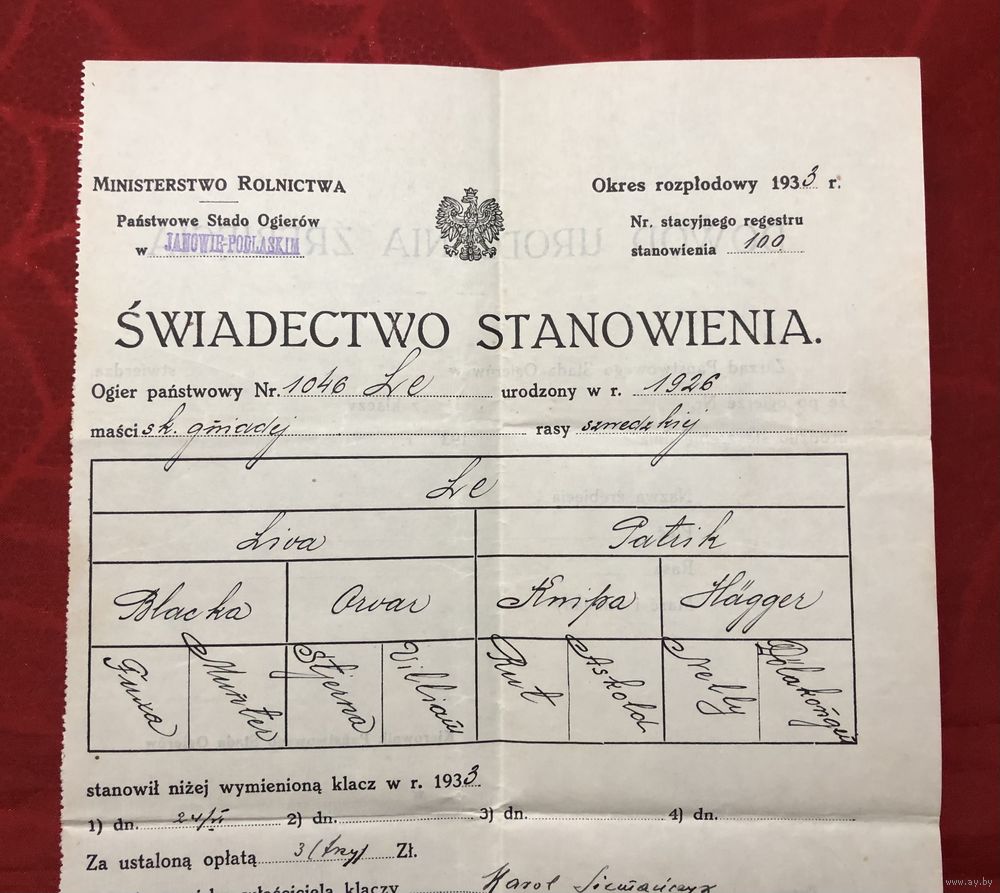 MINISTERSTWO ROLNICTWA
Okres rozpłodowy 1933 r.
Państwowe Stado Ogierów
w JANOWIE-PODLASKIM
Nr. stacyjnego regestru
stanowienia 100
ŚWIADECTWO STANOWIENIA.
Ogier państwowy Nr. 1046 Le urodzony w r. 1926
maści sk. gniadej rasy szwedzkiej
Le
Liva Patrik
Blacka Orvar Knipa Hägger
Münter Stjerna William Rut Askold Nelly
stanowił niżej wymienioną klacz w r. 1933
1) dn. 24/VI 2) dn. 3) dn. 4) dn.
Za ustaloną opłatą 3 (trzy) Zł.
klaczy Karol
www.ay.by